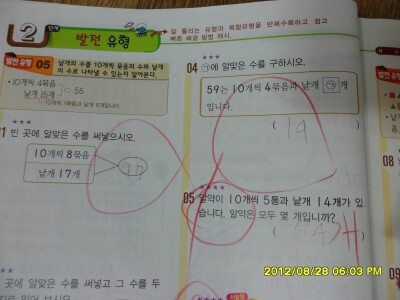 2 단계
발전 유형
잘 틀리는 유형과 복합유형을 반복수록하여 쉽고
빠른 해결 방법 제시.
발전 유형 05
낱개의 수를 10개씩 묶음의 수와 낱개
의 수로 나타낼 수 있는지 알아본다.
10개씩 4묶음
낱개 15개
55
1 빈 곳에 알맞은 수를 써넣으시오.
10개씩 8묶음
낱개 17개
97
04 ㉠에 알맞은 수를 구하시오.
59는 10개씩 4묶음과 낱개 ㉠ 개
입니다.
( 19 )
05 알약이 10개씩 5통과 낱개 14개가 있
습니다. 알약은 모두 몇 개입니까?
곳에 알맞은 수를 써넣고 그 수를 두
07
08
2012/08/28 06:03 PM